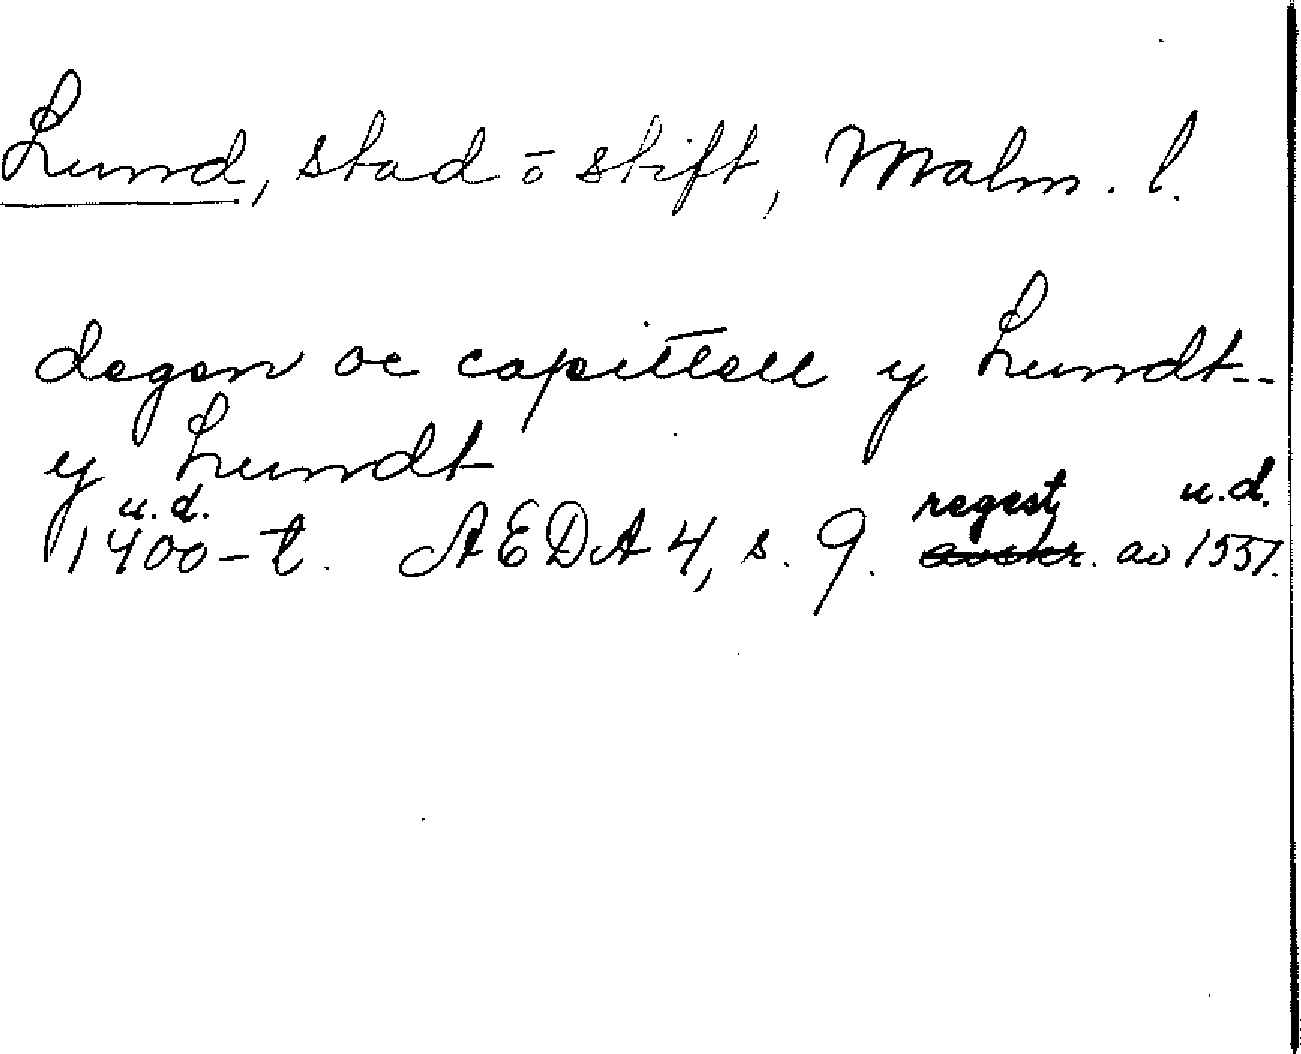 Lund, stad ō stift, Malm. l.
degen oc capittell y Lundt--
y Lundt
u.d. regest u.d.
1400-t. AEDA 4, s. 9. avskr. av 1557.